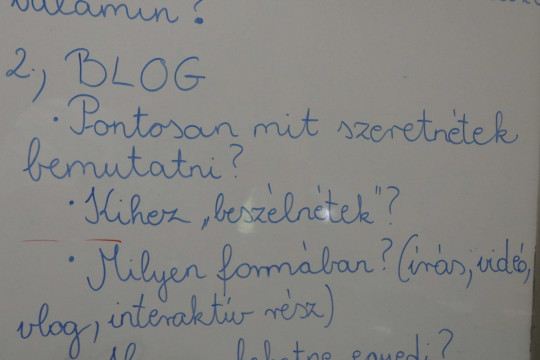 valamin?
2., BLOG
• Pontosan mit szeretnétek
bemutatni?
• Kihez „beszélnétek"?
• Milyen formában? (írás, videó,
vlog, interaktív rész)
lehetne egyedi?